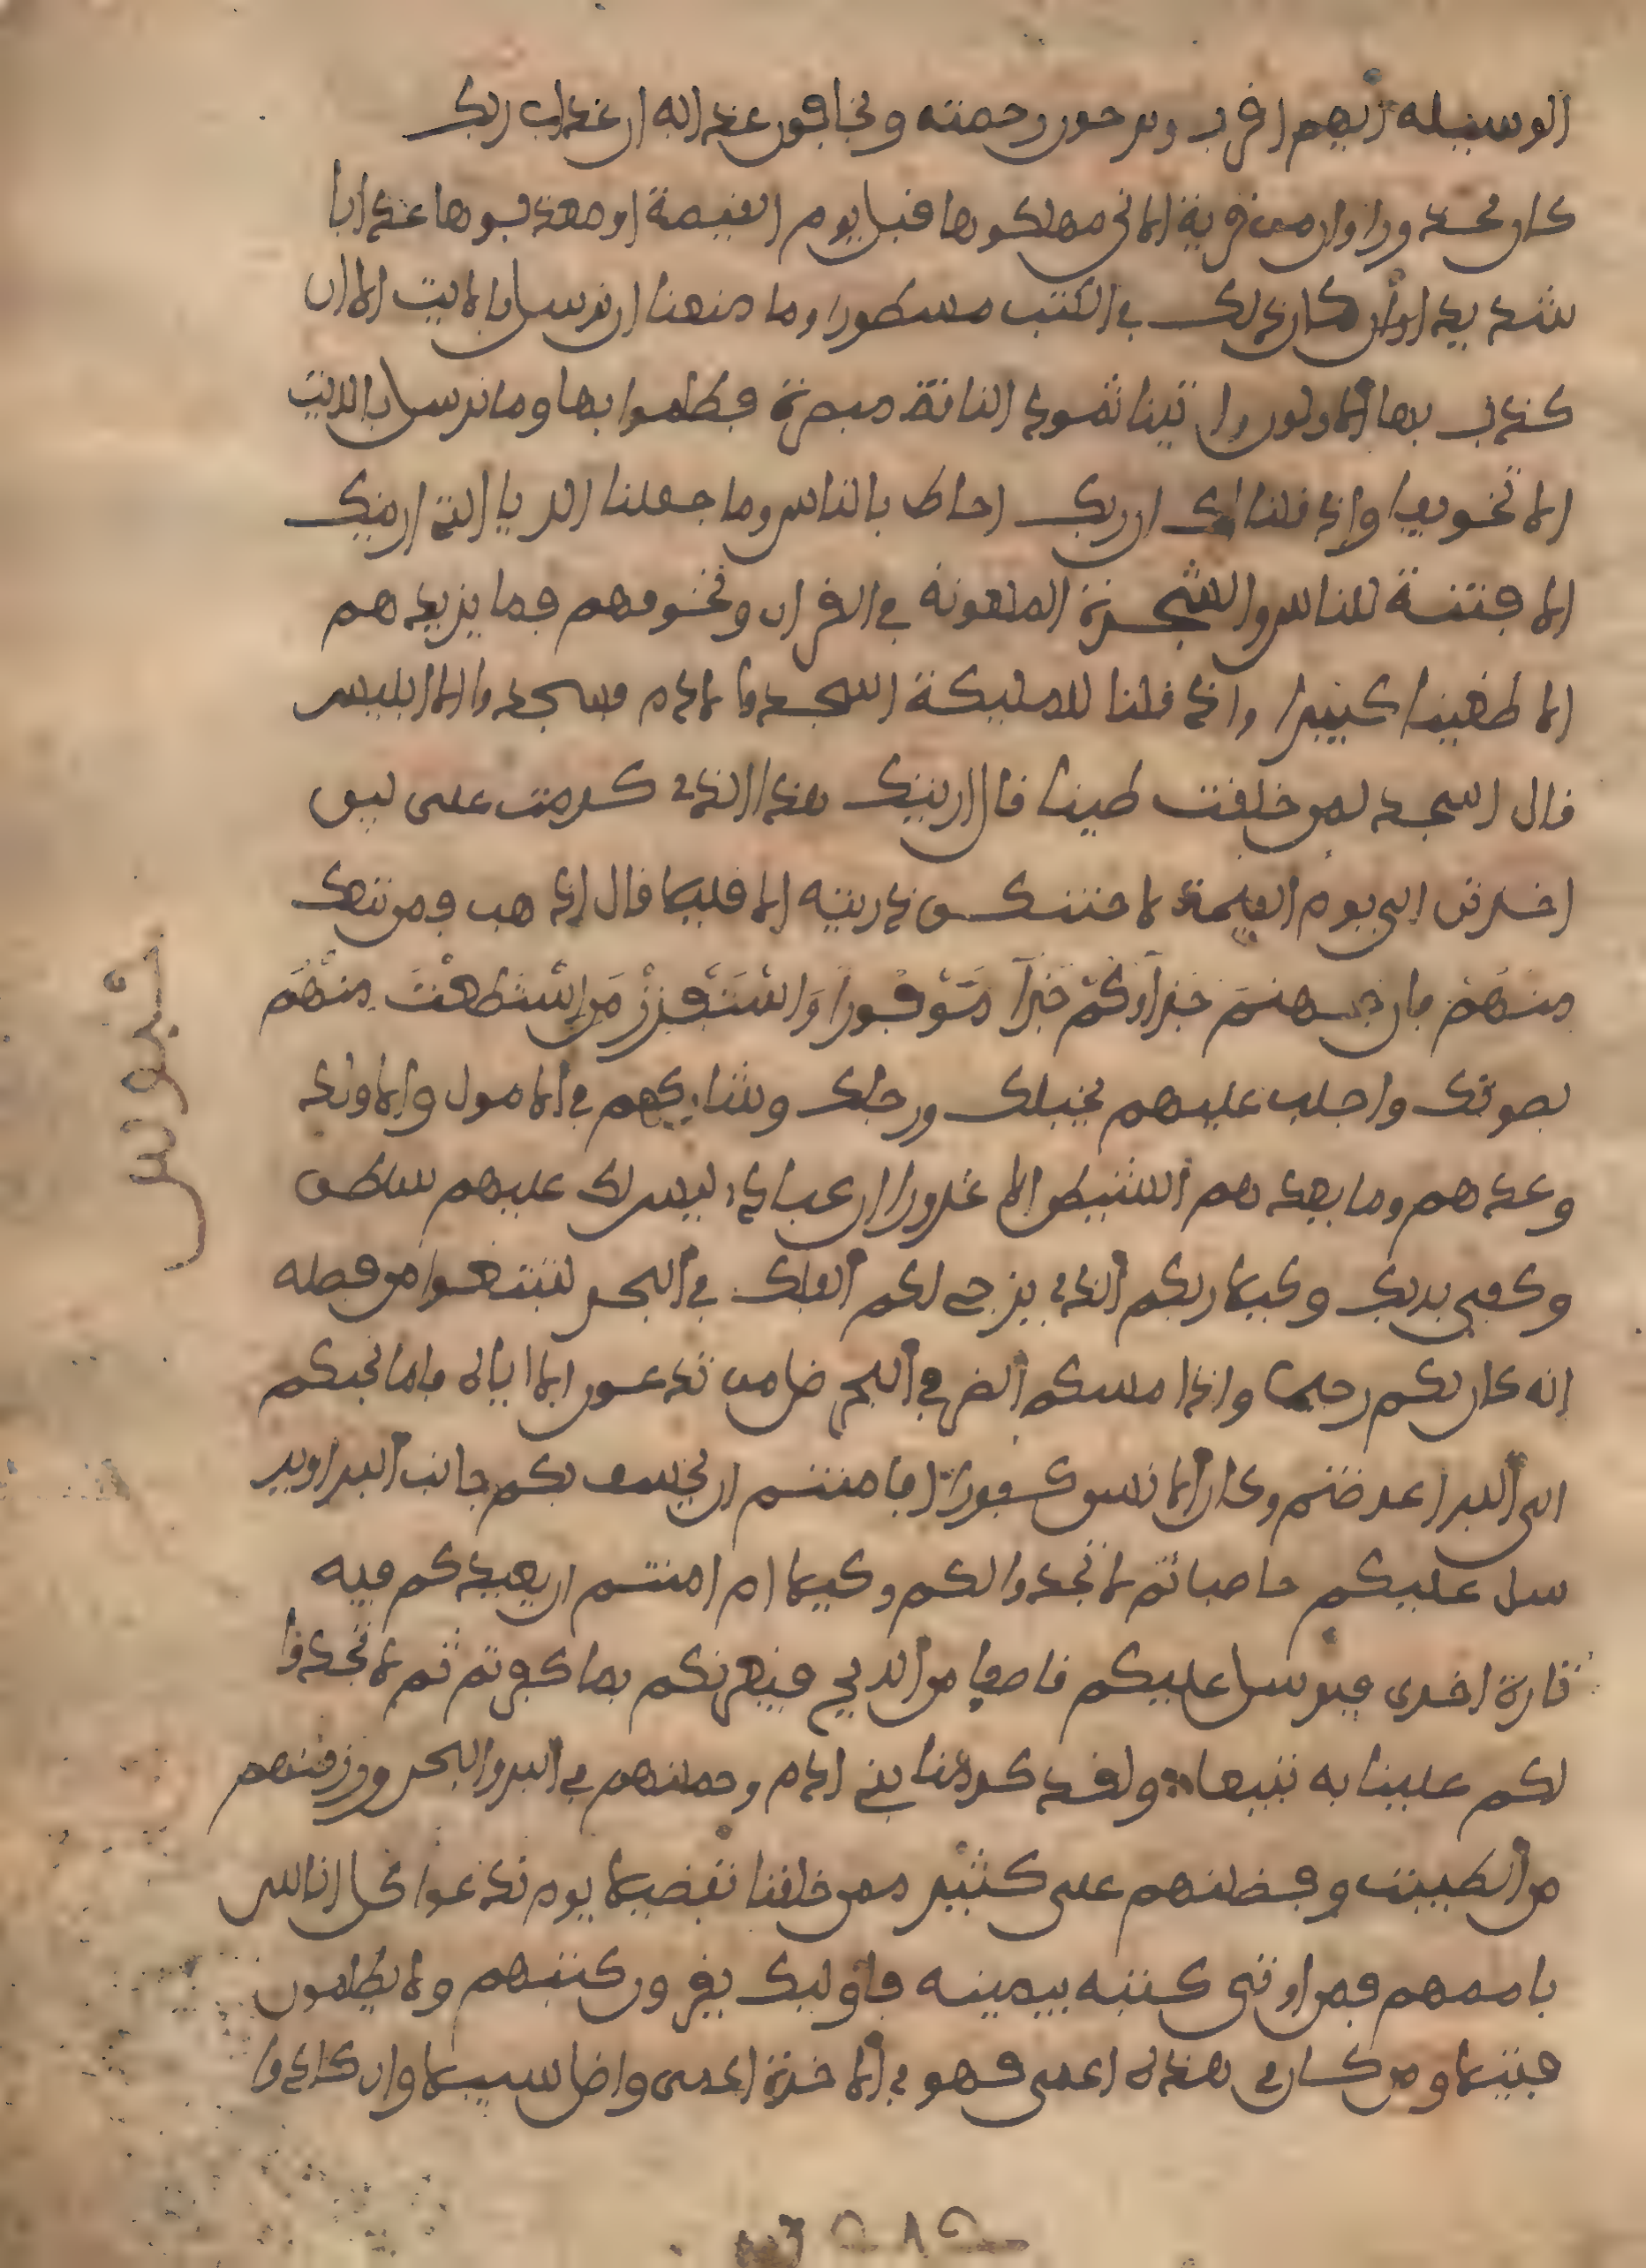 الوسيله ايهم افرب ويرجون رحمته ويخافون عذابه ان عذاب ربك
كان محذورا وان من فرية الا نحن مهلكوها فبل يوم الفيمة او معذبوها عذابا
شديدا كان ذلك في الكتب مسطورا وما منعنا ان نرسل بالايت الا ان
كذب بها الاولون واتينا ثمود النافة مبصرة فظلموا بها وما نرسل بالايت
الا تخويفا وإذ فلنا لك ان ربك احاط بالناس وما جعلنا الريا التي ارينك
الا فتنة للناس والشجرة الملعونة في الفران ونخوفهم فما يزيدهم
الا طغينا كبيرا واذ فلنا للمليكة اسجدوا لادم فسجدوا الا ابليس
فال اسجد لمن خلفت طينا فال اريتك هذا الذي كرمت على لين
اخرتن الى يوم الفيمة لاحتنكن ذريته الا فليلا فال اذهب فمن تبعك
منهم فان جهنم جزاؤكم جزا موفورا واستفزز من استطعت منهم
بصوتك واجلب عليهم بخيلك ورجلك وشاركهم في الامول والاولد
وعدهم وما يعدهم الشيطن الا غرورا ان عبادي ليس لك عليهم سلطن
وكفى بربك وكيلا ربكم الذي يزجي لكم الفلك في البحر لتبتغوا من فضله
انه كان بكم رحيما واذا مسكم الضر في البحر ضل من تدعون الا اياه فلما نجيكم
الى البر اعرضتم وكان الانسن كفورا افامنتم ان يخسف بكم جانب البر او ير
سل عليكم حاصبا ثم لا تجدوا لكم وكيلا ام امنتم ان يعيدكم فيه
تارة اخرى فيرسل عليكم فاصفا من الريح فيغرفكم بما كفرتم ثم لا تجدوا
لكم علينا به تبيعا ولفد كرمنا بني ادم وحملنهم في البر والبحر ورزفنهم
من الطيبت وفضلنهم على كثير ممن خلفنا تفضيلا يوم ندعوا كل اناس
باممهم فمن اوتي كتبه بيمينه فاوليك يفرون كتبهم ولا يظلمون
فتيلا ومن كان في هذه اعمى فهو في الاخرة اعمى واضل سبيلا وان كادوا